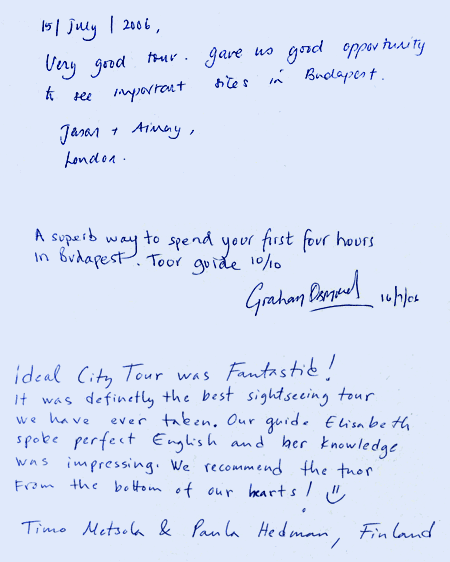 15 / July / 2006,
Very good tour. gave us good opportunity
to see important sites in Budapest.
Jason + Aimay,
London.
A superb way to spend your first four hours
in Budapest. Toor guide 10/10
Graham Osmond 16/7/06
Ideal City Tour was Fantastic!
It was definetly the best sightseeing tour
we have ever taken. Our guide Elisabeth
spoke perfect English and her knowledge
was impressing. We recommend the tuor
From the bottom of our hearts!
Timo Metsola & Paula Hedman, Finland